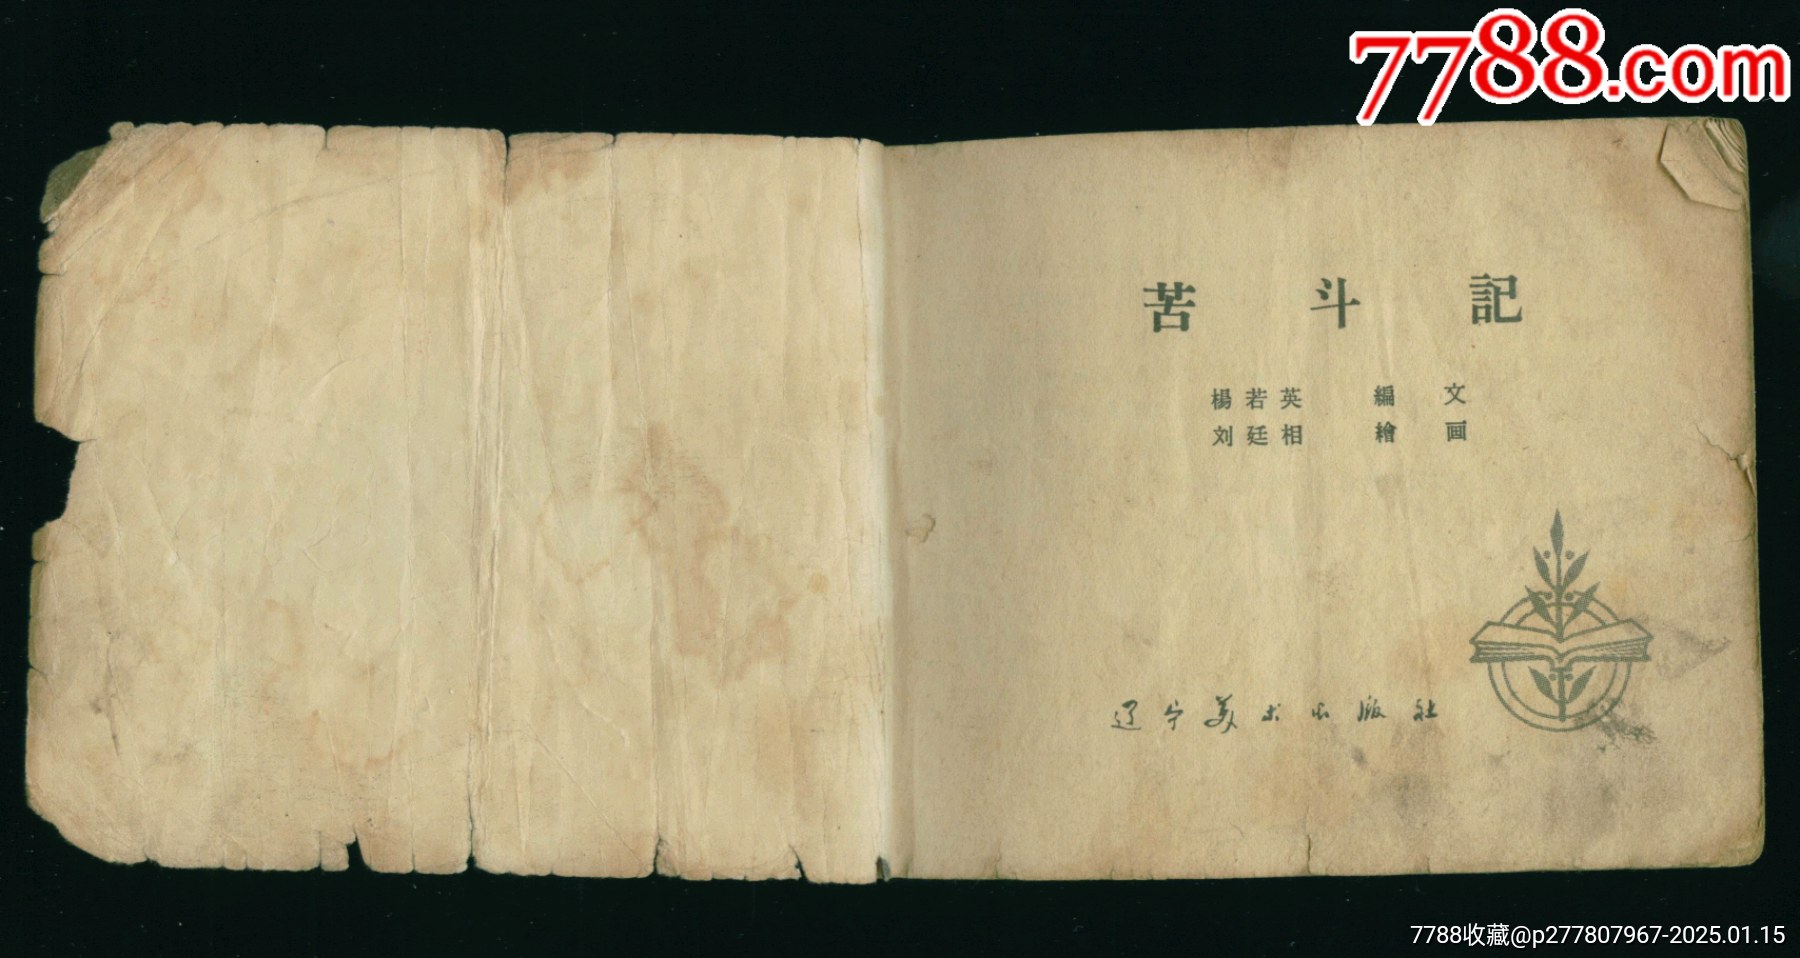 7788.com
苦斗記
楊若英 編文
刘廷相 繪画
辽宁美术出版社
7788收藏@p277807967-2025.01.15